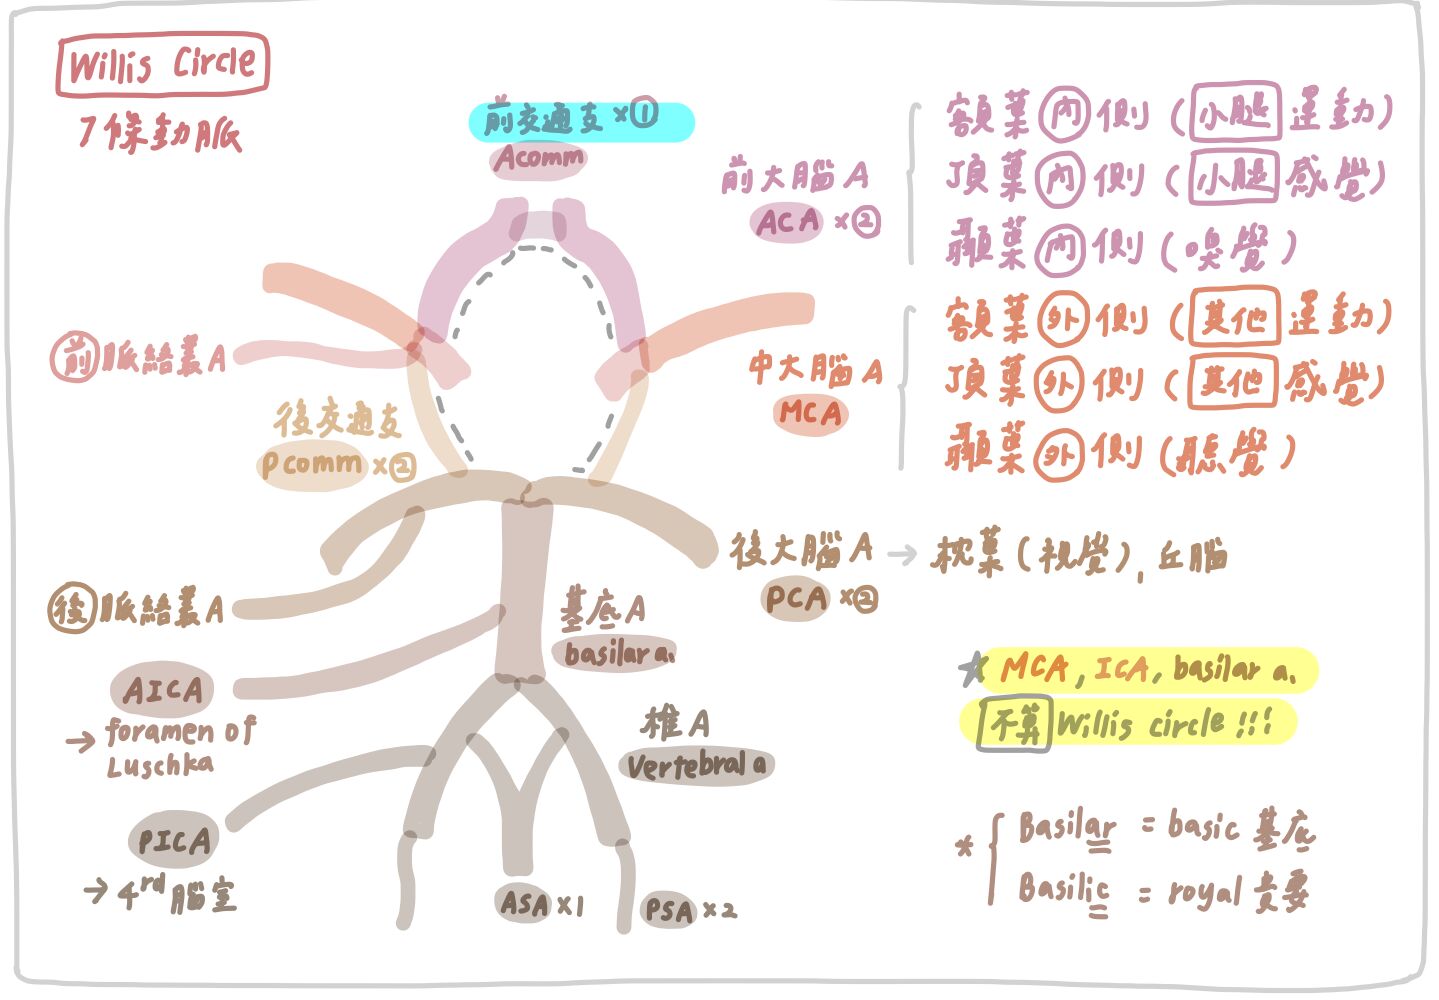 Willis Circle
7條動脈
前交通支×①
Acomm
前大腦A
ACA ×②
額葉內側(小腿運動)
頂葉內側(小腿感覺)
顳葉內側(嗅覺)
中大腦A
MCA
額葉外側(其他運動)
頂葉外側(其他感覺)
顳葉外側(聽覺)
前脈絡叢A
後交通支
Pcomm×②
後大腦A → 枕葉(視覺),丘腦
PCA ×②
後脈絡叢A
基底A
basilar a.
AICA
→ foramen of
Luschka
椎A
Vertebral a
PICA
→ 4rd腦室
ASA×1
PSA×2
☆ MCA, ICA, basilar a.
不算 Willis circle!!!
* Basilar = basic 基底
Basilic = royal 貴要